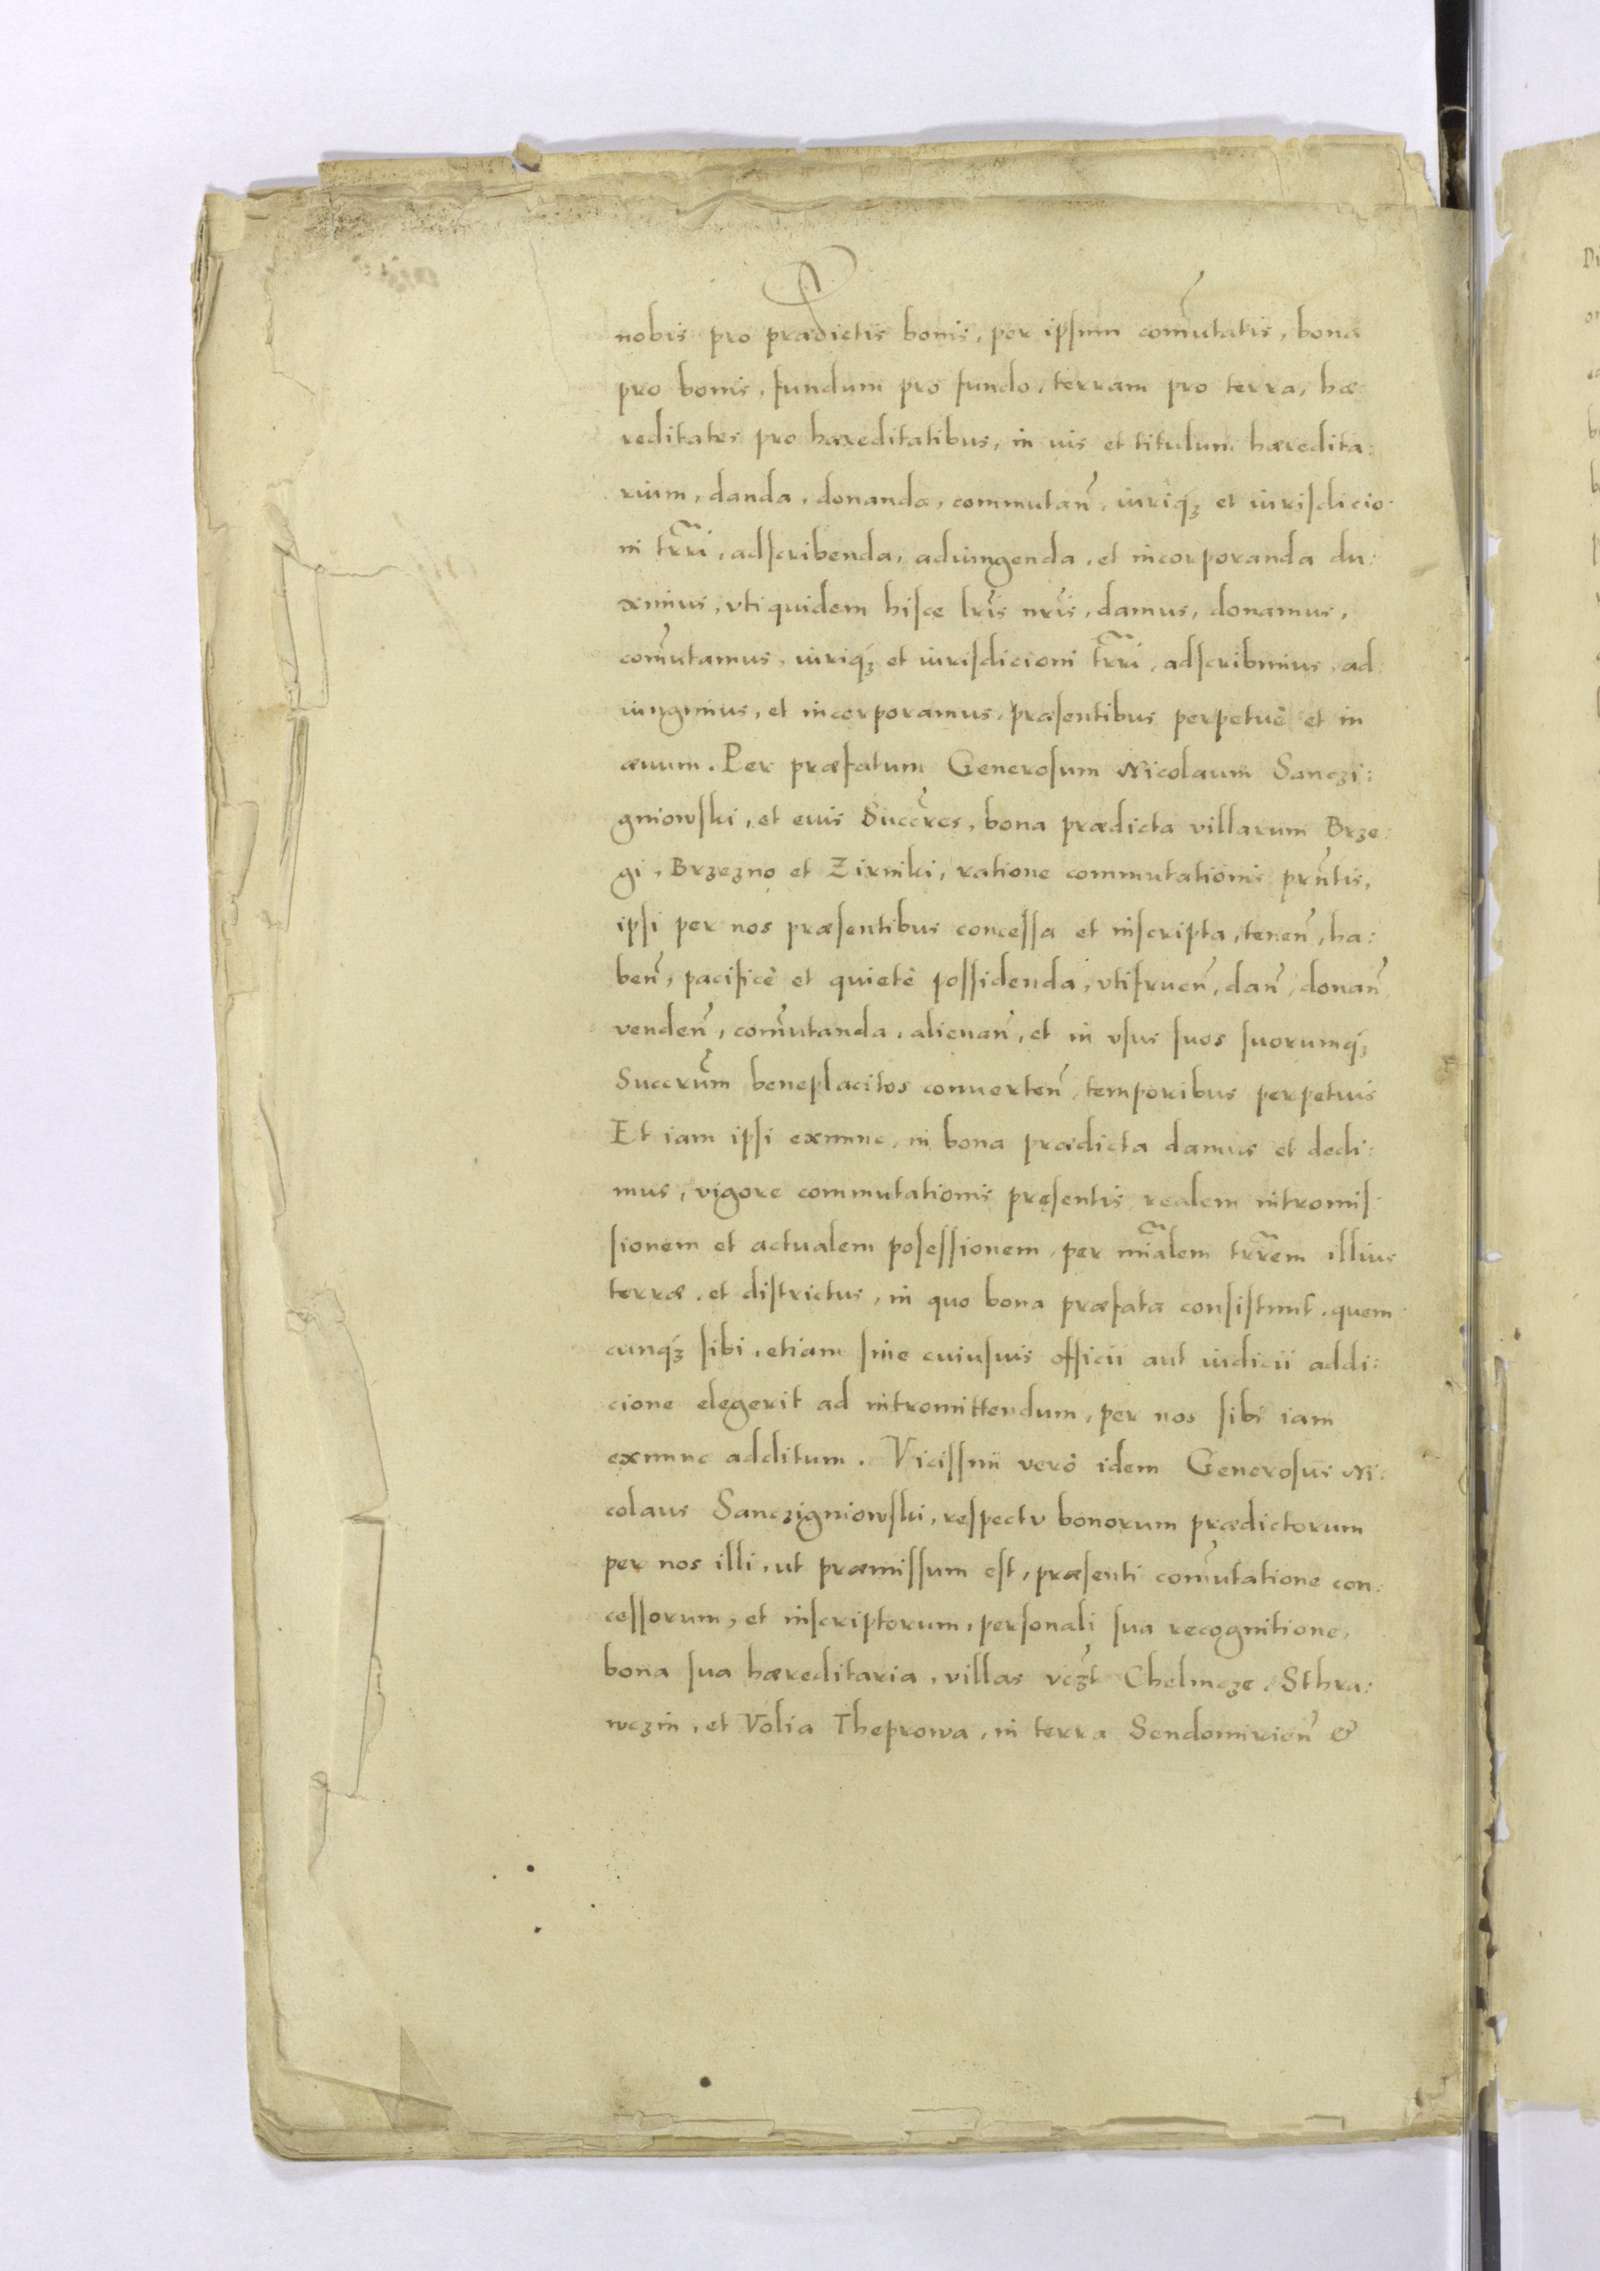 nobis pro prædictis bonis, per ipsum com̃utatis, bona
pro bonis, fundum pro fundo, terram pro terra, hæ
reditates pro hæreditatibus, in ius et titulum hæredita:
rium, danda, donanda, commutañ, iuriq́ꝫ et iurisdicio
ni tr̃ri, adscribenda, adiungenda, et incorporanda du:
ximus, vti quidem hisce lr̃is nr̃is, damus, donamus,
com̃utamus, iuriq́ꝫ et iurisdicioni tr̃ri, adscribimus, ad
iungimus, et incorporamus, præsentibus perpetuè et in
æuum. Per præfatum Generosum Nicolaum Sanczi:
gniowski, et eius Succr̃es, bona prædicta villarum Brze:
gi, Brzezno et Zirniki, ratione commutationis prñtis,
ipsi per nos præsentibus concessa et inscripta, teneñ, ha:
beñ, pacificè et quietè possidenda, vtifrueñ, dañ, donañ
vendeñ, com̃utanda, alienañ, et in vsus suos suorumq́ꝫ
Succrũm beneplacitos conuerteñ, temporibus perpetuis
Et iam ipsi exnunc, in bona prædicta damus et dedi:
mus, vigore commutationis præsentis realem intromis
sionem et actualem posessionem, per min̑alem tr̃rem illius
terræ, et districtus, in quo bona præfata consistunt, quem
cunq́ꝫ sibi, etiam sine cuiusuis officii aut iudicii addi:
cione elegerit ad intromittendum, per nos sibi iam
exnunc additum. Vicissim verò idem Generosus Ni:
colaus Sanczigniowski, respectu bonorum prædictorum
per nos illi, ut præmissum est, præsenti com̃utatione con:
cessorum, et inscriptorum, personali sua recognitione,
bona sua hæreditaria, villas vcꝫt Chelmcze, Sthra:
wczin, et Volia Theprowa, in terra Sendomirieñ &